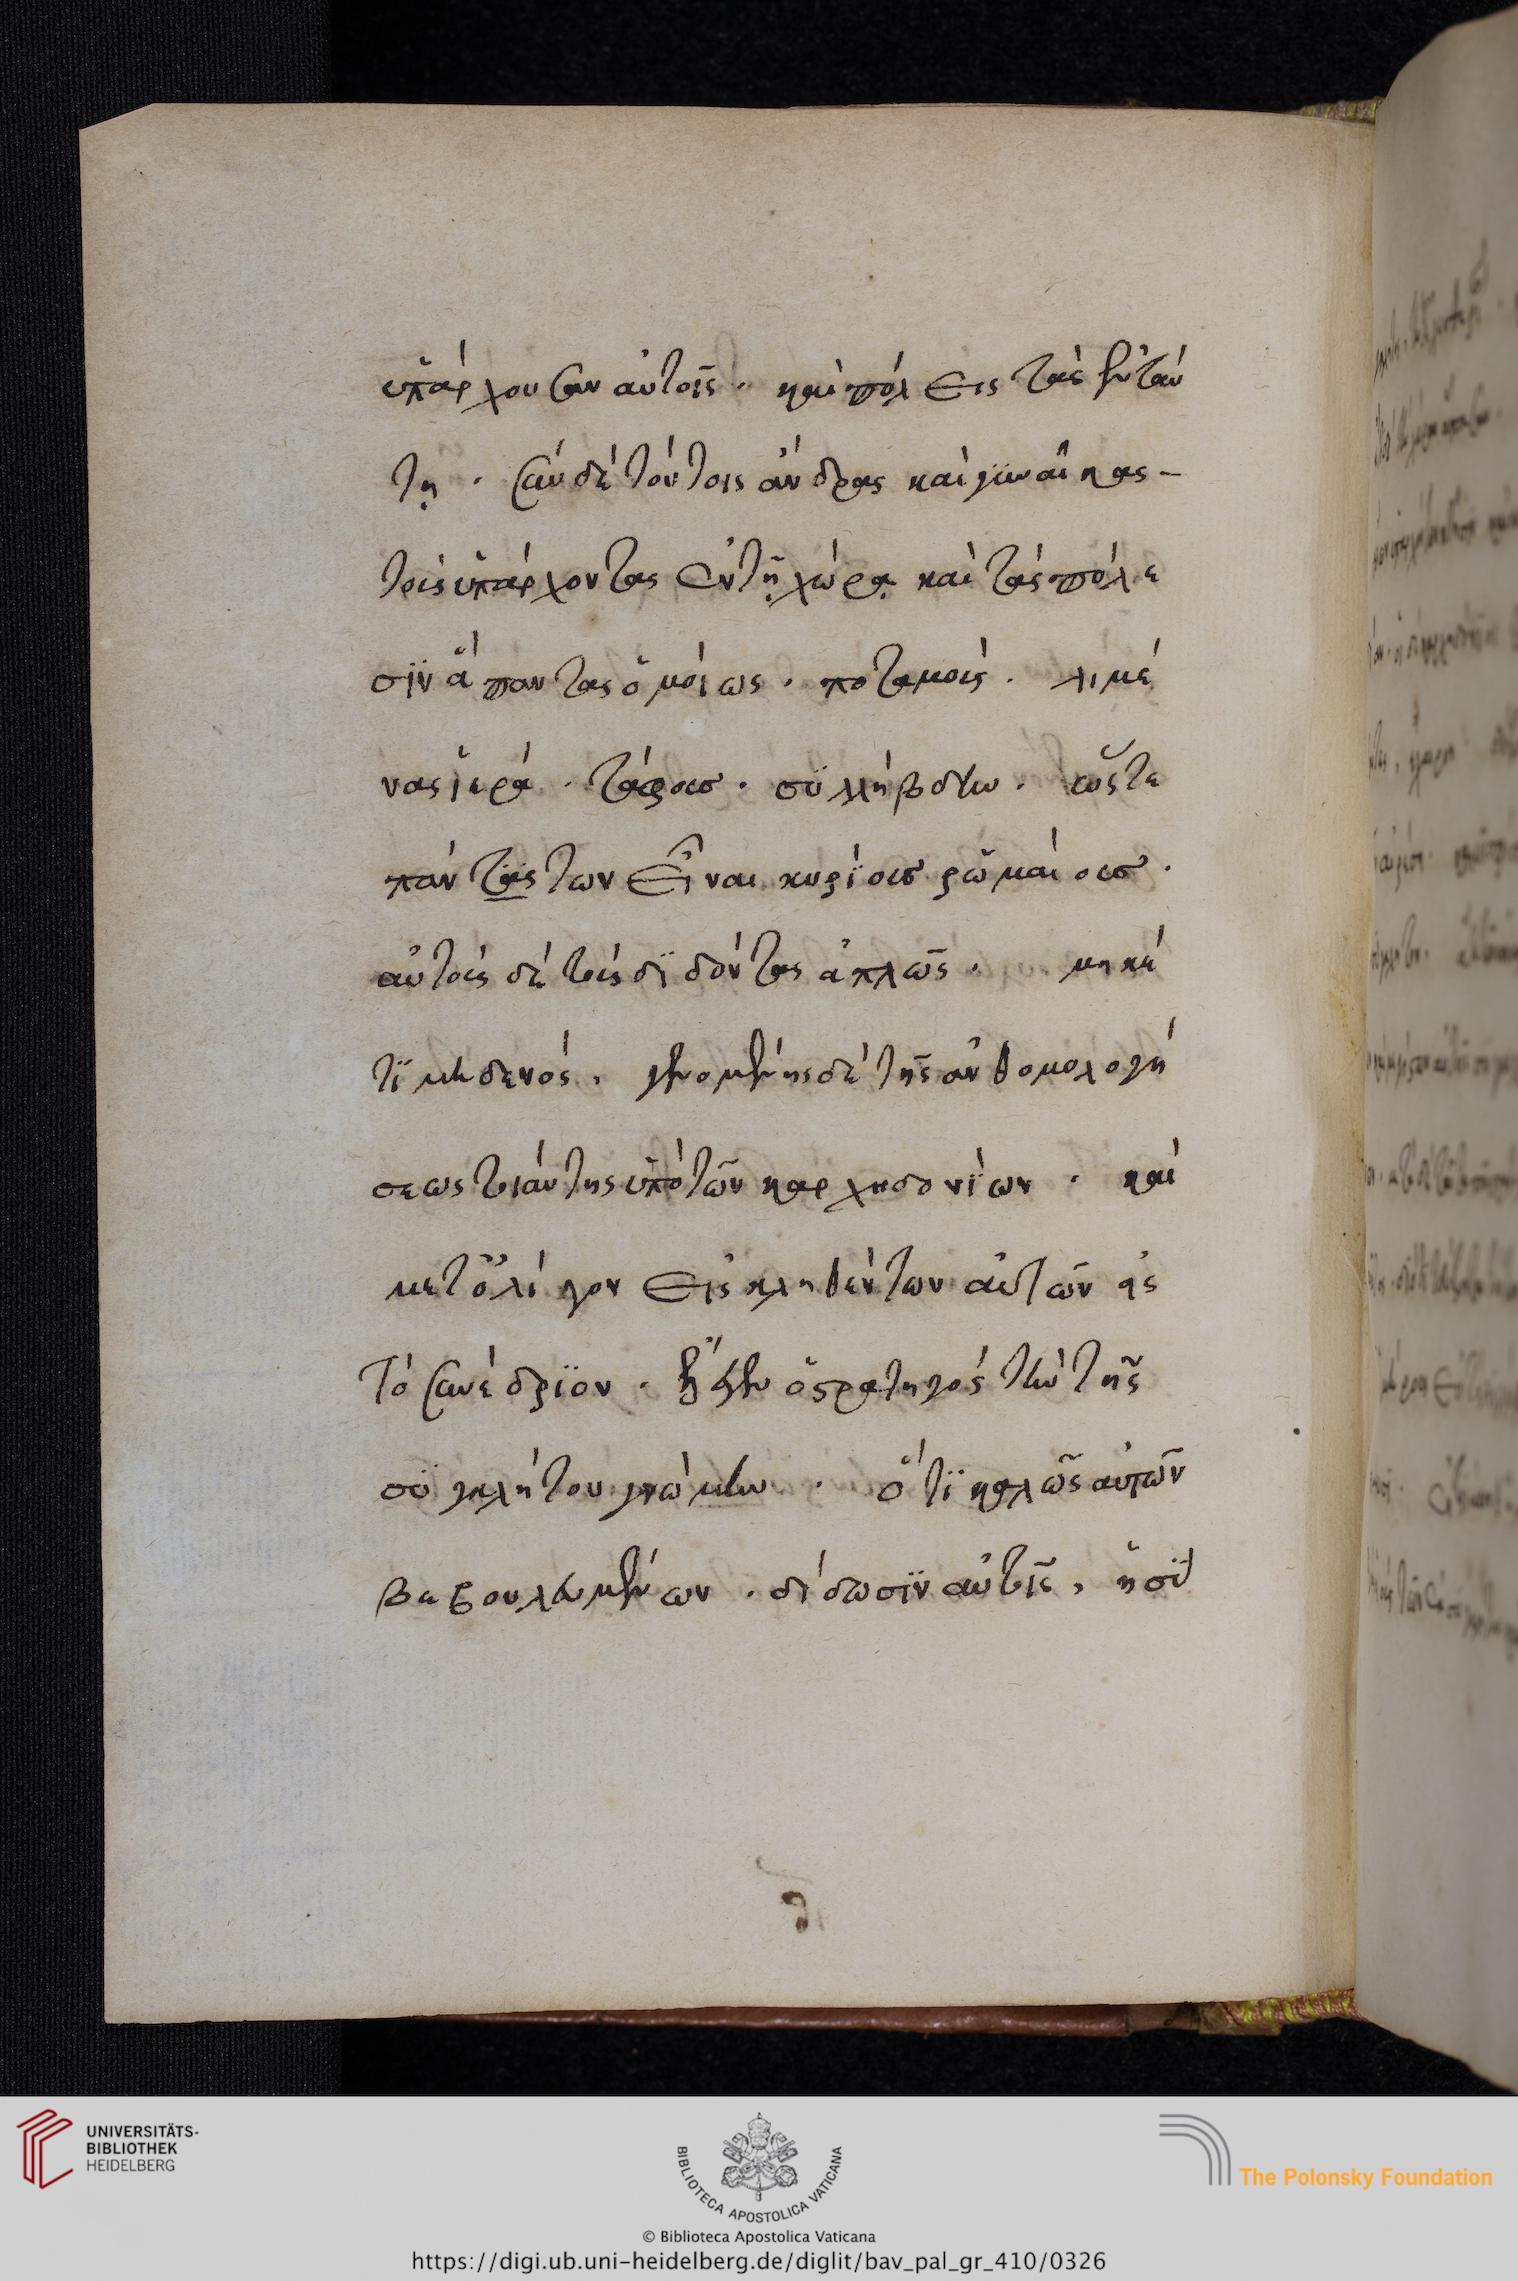 ὑπάρχουσαν αὐτοῖς · καὶ πόλεις τὰς ἐν ταύ
τῃ · σὺν δὲ τούτοις ἄνδρας καὶ γϋναῖκας –
τοὺς ὑπάρχοντας ἐν τῇ χώρᾳ καὶ ταῖς πόλε
σϊν ἅπαντας ὁμοίως · ποταμοὺς · λιμέ
νας ἱερά · τάφους · σϋλλήβδην · ὥστε
πάντων εἶναι κυρίους ῥωμαίους ·
αὐτοὺς δὲ τοὺς δϊδόντας ἁπλῶς · μηκέ
τϊ μηδενός · γενομένης δὲ τῆς ἀνθομολογή
σεως τοιαύτης ὑπὸ τῶν καρχηδονΐων · καὶ
μετ ὀλίγον εἰσκληθέντων αὐτῶν εἰς
τὸ συνέδρϊον · ἔλεγεν ὁ στρατηγὸς τὴν τῆς
σϋγκλήτου γνώμην · ὅτϊ καλῶς αὐτῶν
βεβουλευμένων · δίδωσϊν αὐτοῖς, ἡ σύ
UNIVERSITÄTS-
BIBLIOTHEK
HEIDELBERG
BIBLIOTECA APOSTOLICA VATICANA
© Biblioteca Apostolica Vaticana
The Polonsky Foundation
https://digi.ub.uni-heidelberg.de/diglit/bav_pal_gr_410/0326